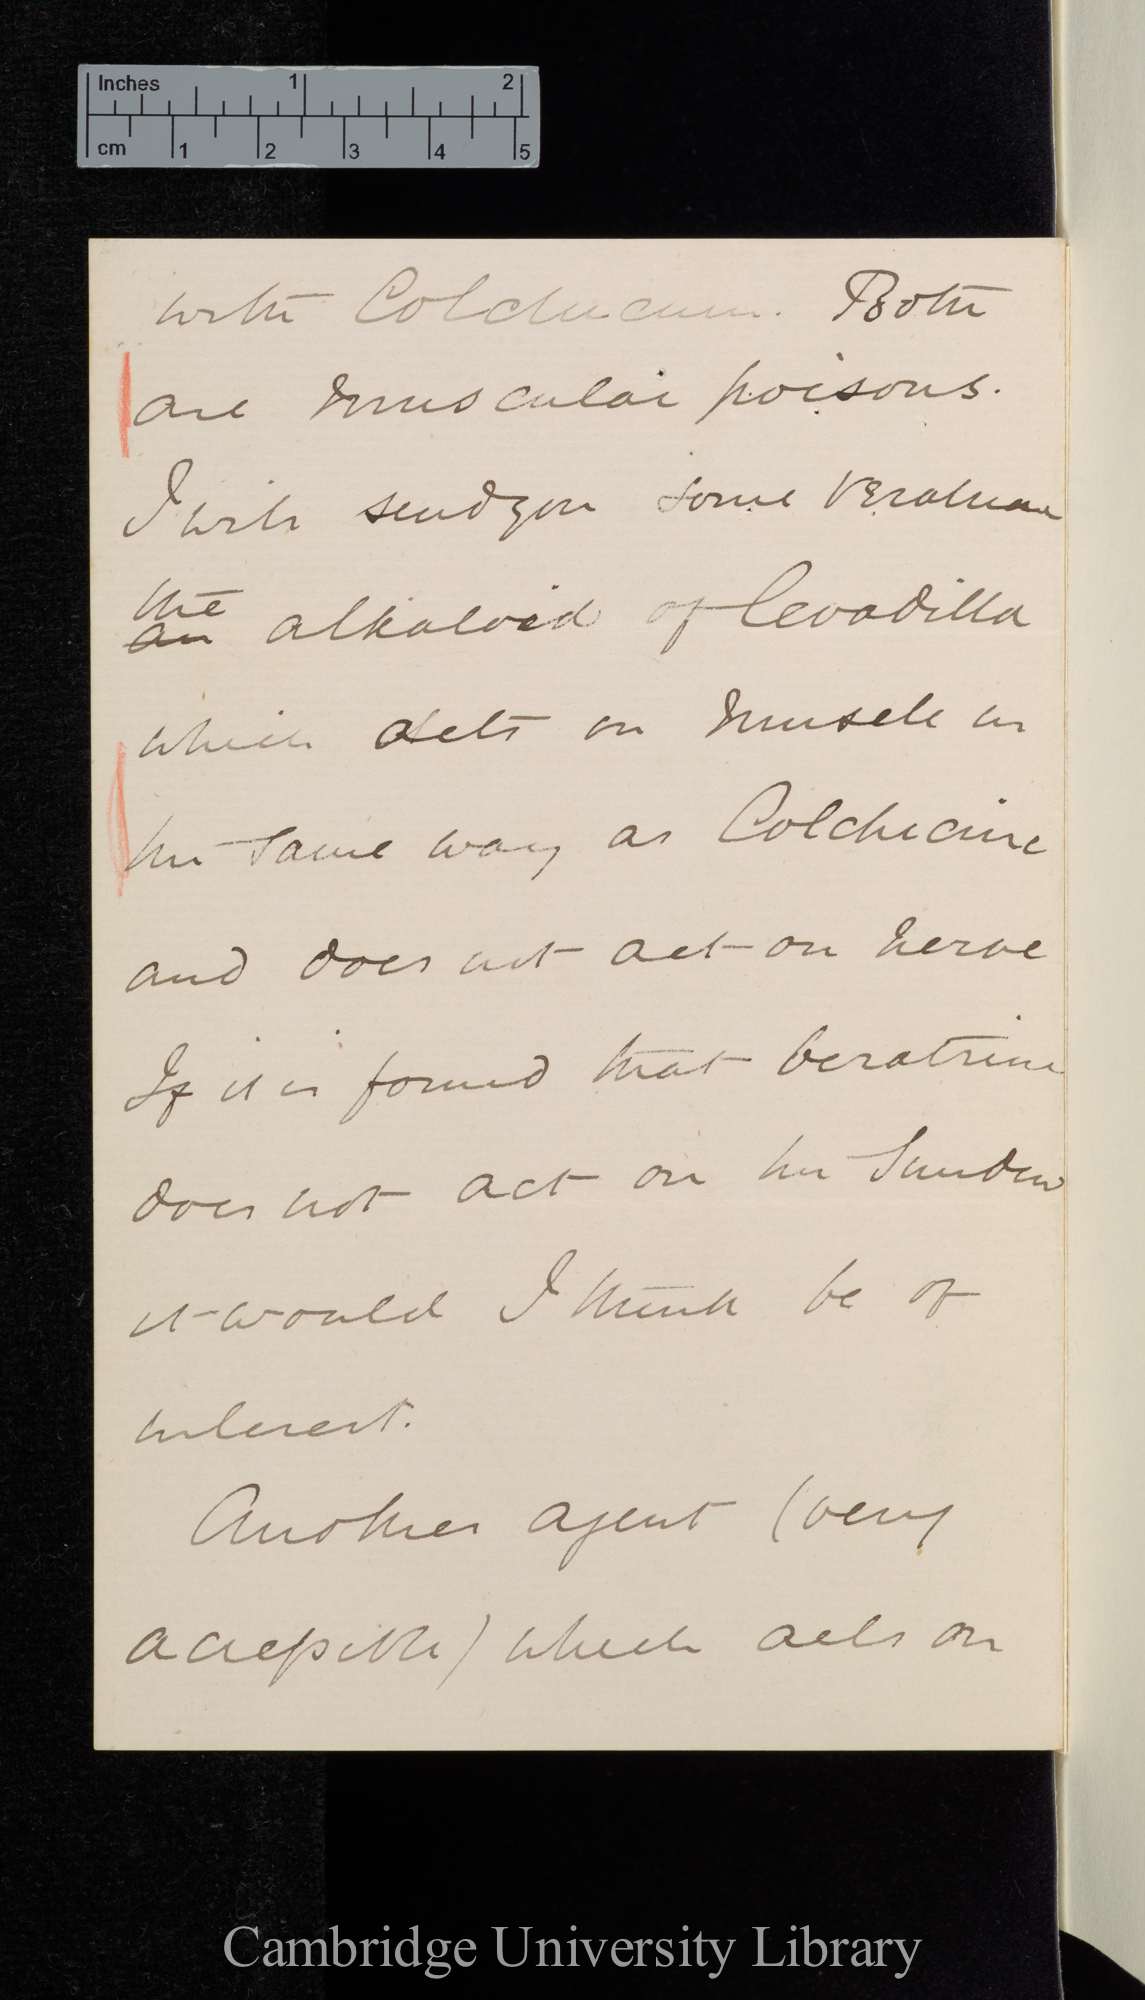 Inches 1 2
cm 1 2 3 4 5
with Colchicum. Both
are muscular poisons.
I will send you some Veratrine
the
an alkaloid of Cevadilla
which acts on muscle in
the same way as Colchicine
and does not act on nerve
If it is found that veratrine
does not act on the Sundew
it would I think be of
interest.
Another agent (very
acceptible) which acts on
Cambridge University Library